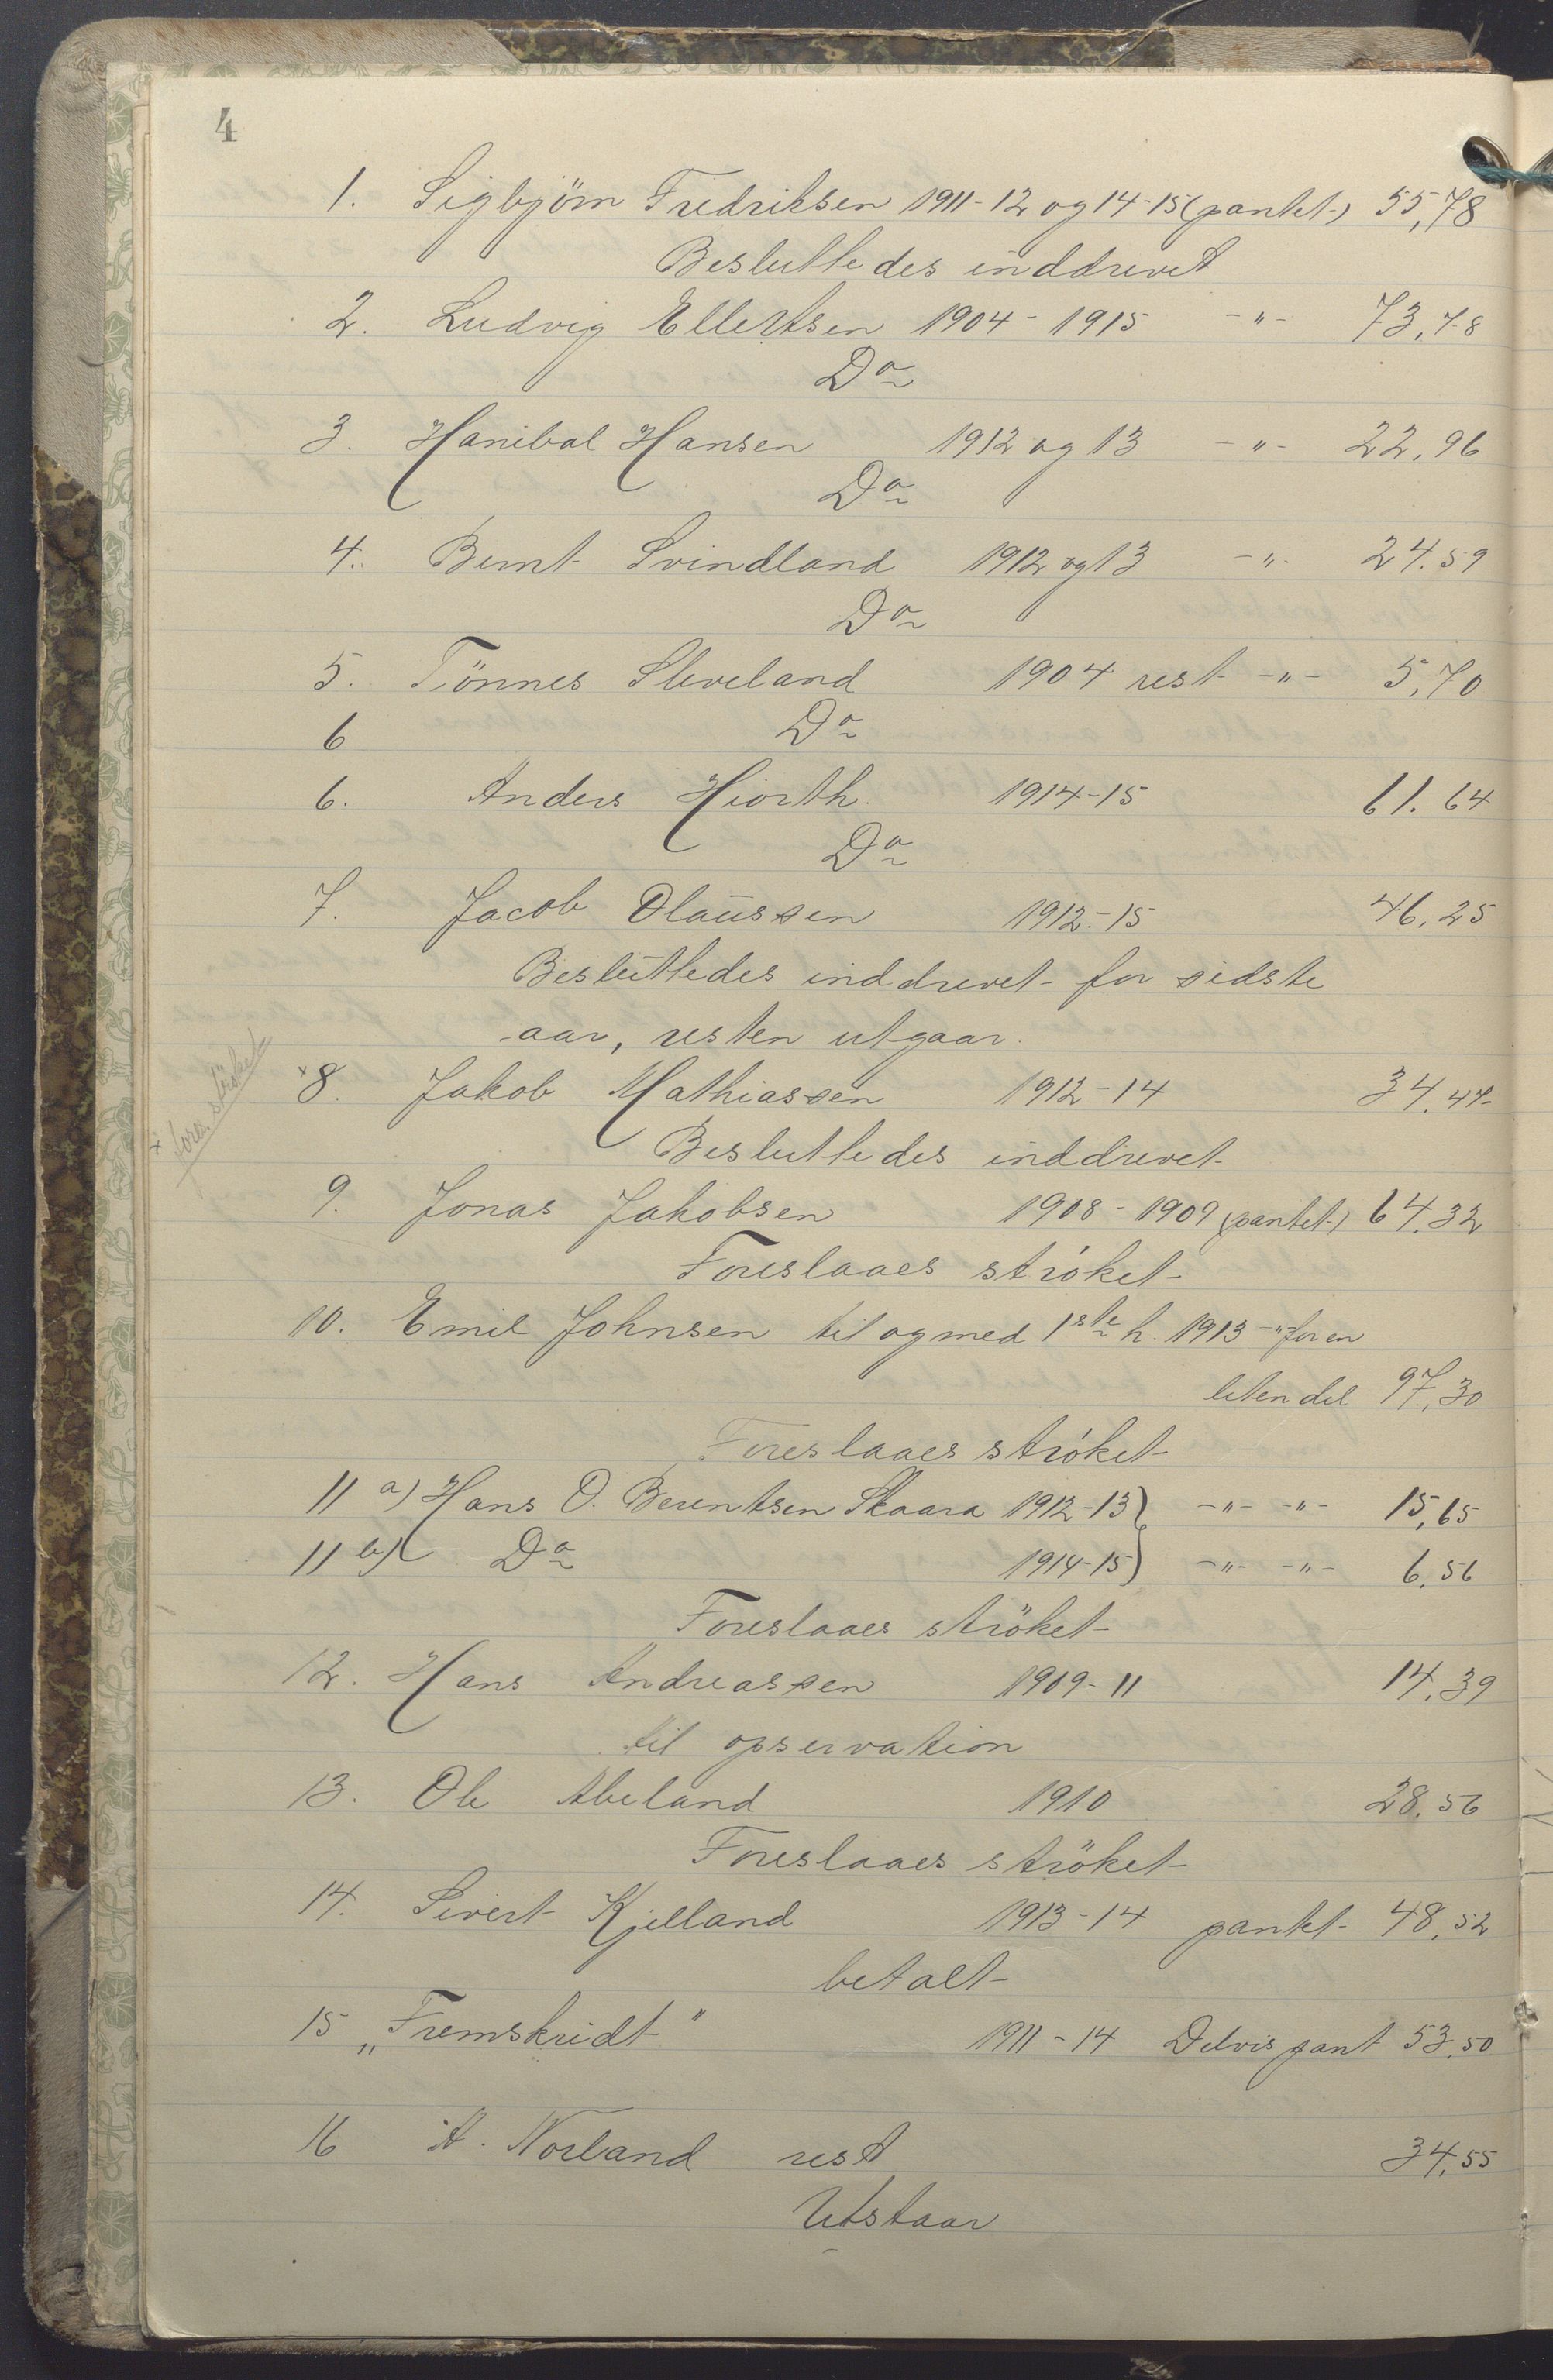 4
1. Sigbjörn Fredriksen 1911-12 og 14-15 (pantet) 55,78
Besluttedes inddrevet
2. Ludvig Ellertsen 1904-1915 -"- 73,78
Do
3. Hanibal Hansen 1912 og 13 -"- 22,96
Do
4. Bernt Svindland 1912 og 13 -"- 24.59
Do
5. Tönnes Sleveland 1904 rest -"- 5,70
6 Do
6. Anders Hiorth. 1914-15 61.64
Do
7. Jacob Olaussen 1912-15 46,25
Besluttedes inddrevet for sidste
aar, resten utgaar.
x 8. Jakob Mathiassen 1912-14 34,47
x fores. ströket
Besluttedes inddrevet
9. Jonas Jakobsen 1908-1909 (pantet) 64,32
Foreslaaes ströket
10. Emil Johnsen til og med 1ste h. 1913 -"- for en
liten del 97,30
Foreslaaes ströket
11 a) Hans O. Berentsen Skaara 1912-13 } -"- -"- 15,65
11 b) Do 1914-15 } -"- -"- 6,56
Foreslaaes ströket
12. Hans Andreassen 1909-11 14,39
til opservation
13. Ole Abeland 1910 28,56
Foreslaaes ströket
14. Sivert Kjelland 1913-14 pantet 48,52
betalt
15 „Fremskridt" 1911-14 Delvis pant 53,50
16 A. Norland rest 34,55
Utstaar